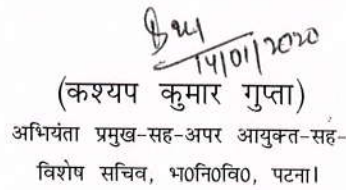 14/01/2020
(कश्यप कुमार गुप्ता)
अभियंता प्रमुख-सह-अपर आयुक्त-सह-
विशेष सचिव, भ0नि0वि0, पटना।